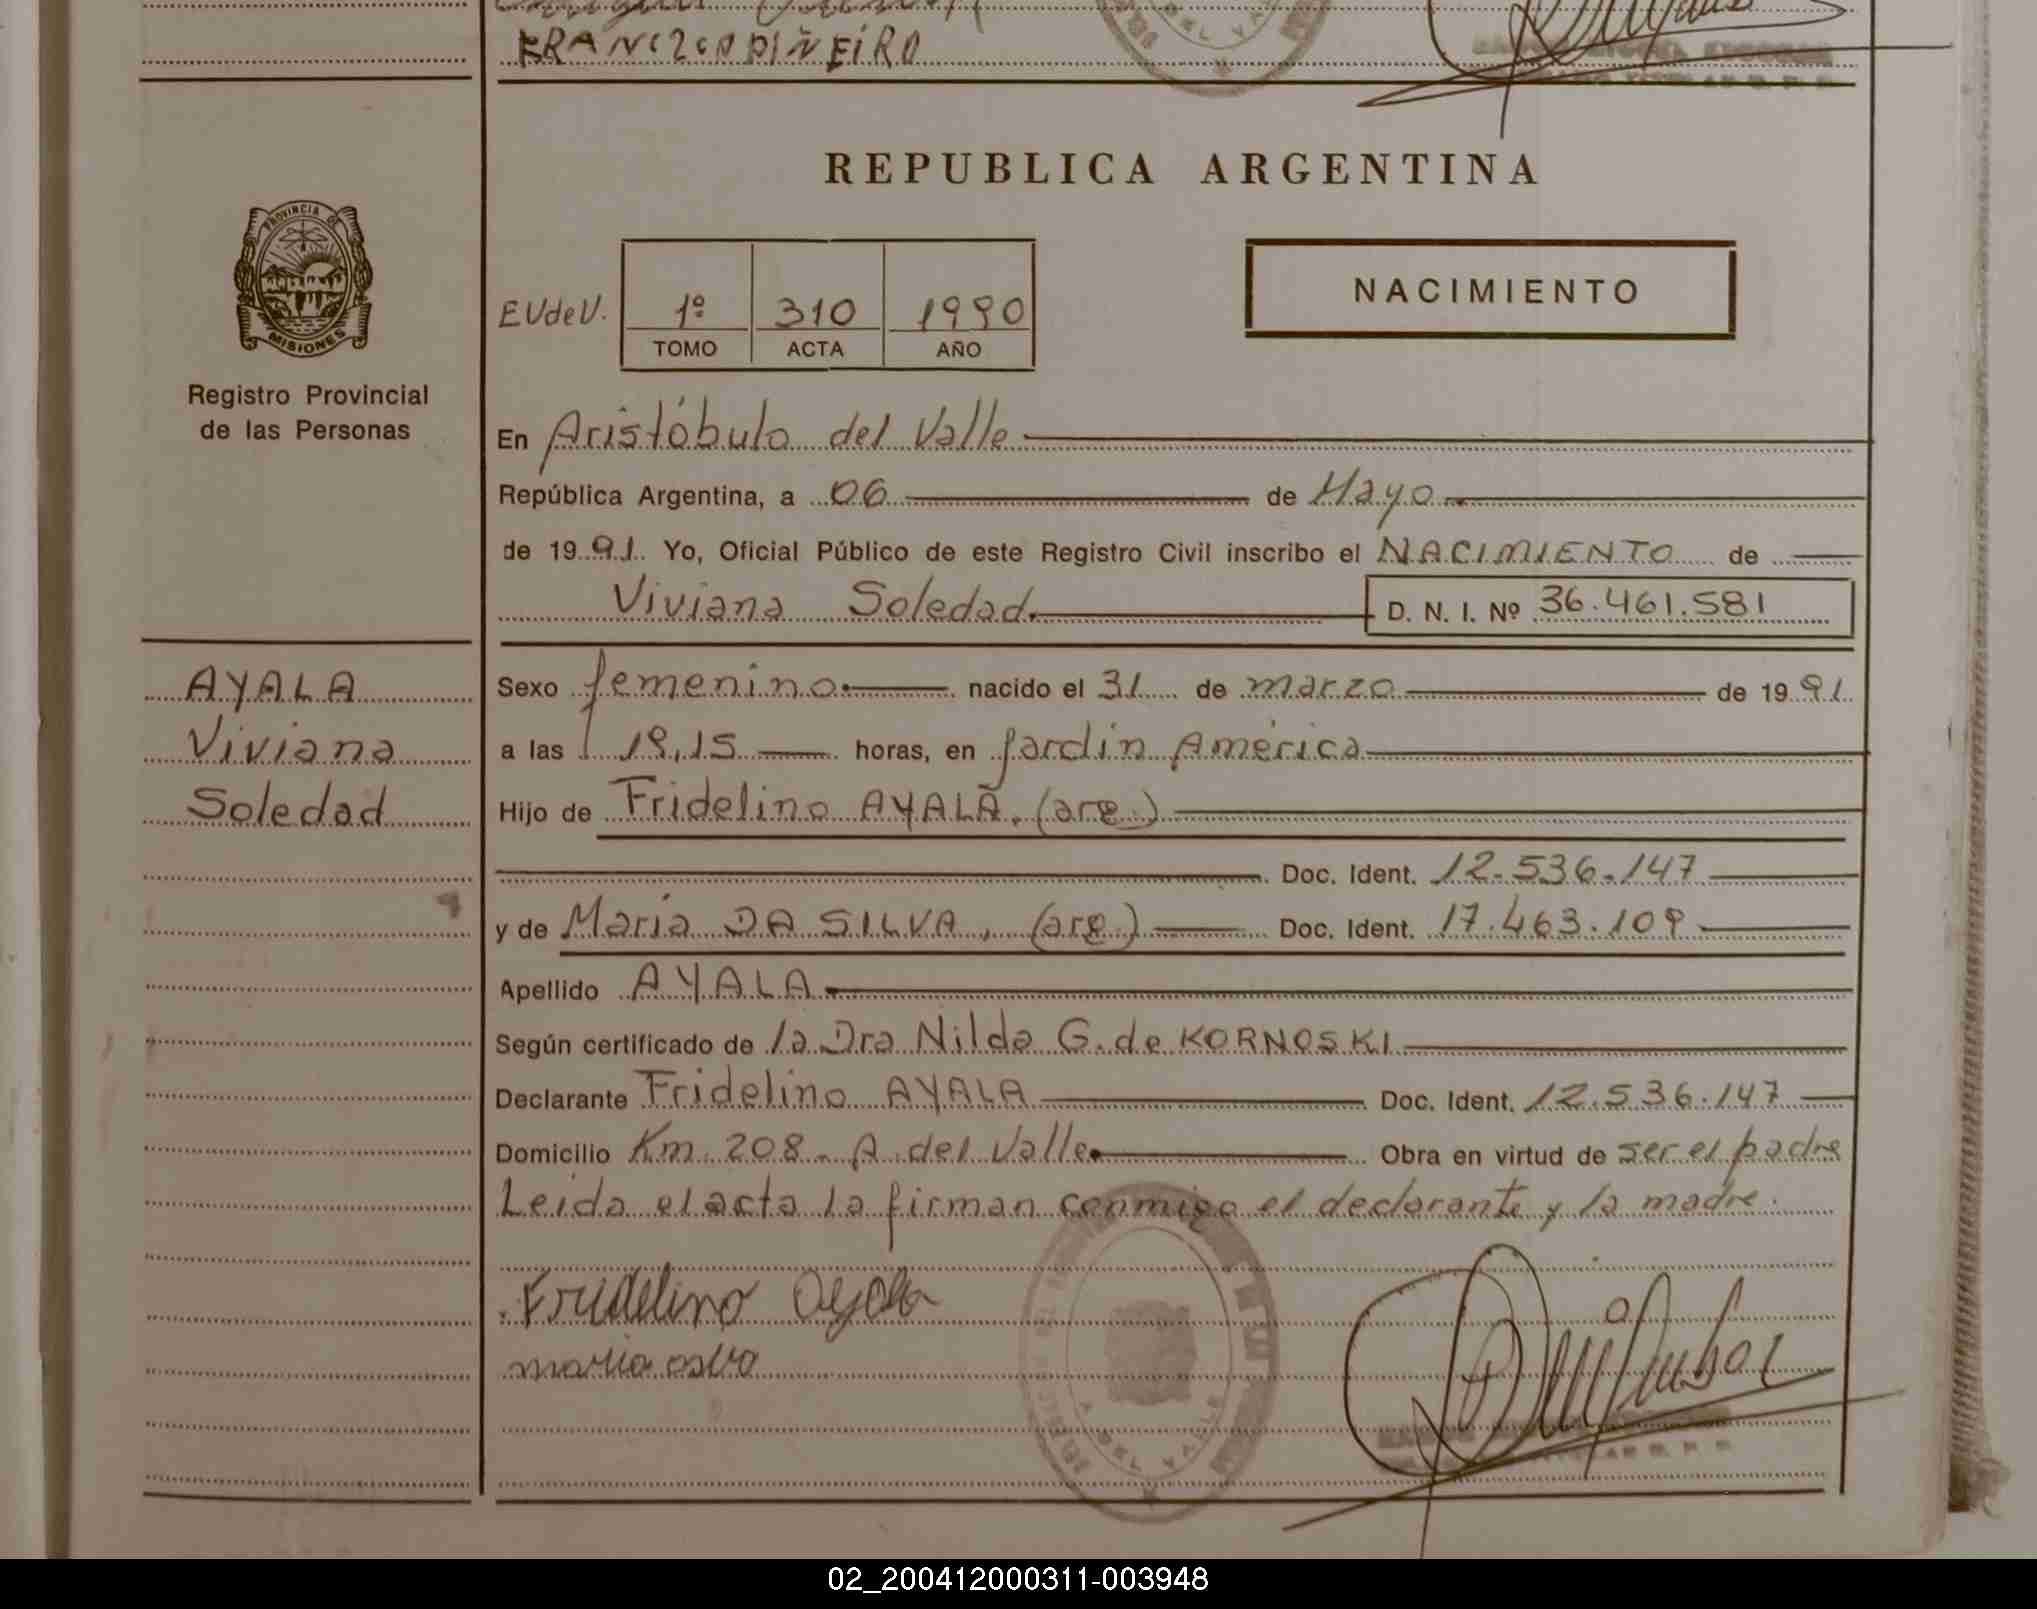 FRANCZCO PIÑEIRO
REPUBLICA ARGENTINA
PROVINCIA DE
MISIONES
Registro Provincial
de las Personas
EVdeV.
1º 310 1990
TOMO ACTA AÑO
NACIMIENTO
En Aristóbulo del Valle
República Argentina, a 06 de Mayo
de 1991. Yo, Oficial Público de este Registro Civil inscribo el NACIMIENTO de
Viviana Soledad. D. N. I. Nº 36.461.581
AYALA
Viviana
Soledad
Sexo femenino nacido el 31 de marzo de 1991
a las 19,15 horas, en Jardín América
Hijo de Fridelino AYALA, (arg.)
Doc. Ident. 12.536.147
y de María DA SILVA, (arg.) Doc. Ident. 17.463.109
Apellido AYALA
Según certificado de la Dra Nilda G. de KORNOSKI
Declarante Fridelino AYALA Doc. Ident. 12.536.147
Domicilio Km. 208 - A. del Valle Obra en virtud de ser el padre
Leida el acta la firman conmigo el declarante y la madre.
Fridelino Ayala
maria
02_200412000311-003948